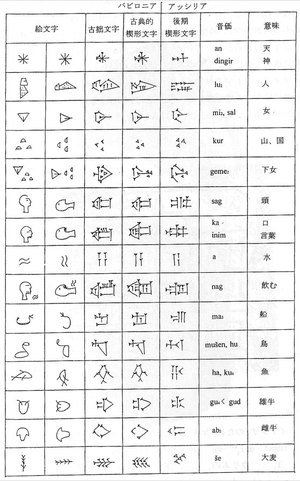 バビロニア アッシリア
絵文字 古拙文字 古典的 後期 音価 意味
楔形文字 楔形文字
an 天
dingir 神
lu₂ 人
mi₂, sal 女
kur 山、国
geme₂ 下女
sag 頭
ka 口
inim 言葉
a 水
nag 飲む
ma₂ 船
mušen, hu 鳥
ha, ku₆ 魚
gu₄ < gud 雄牛
ab₂ 雌牛
še 大麦